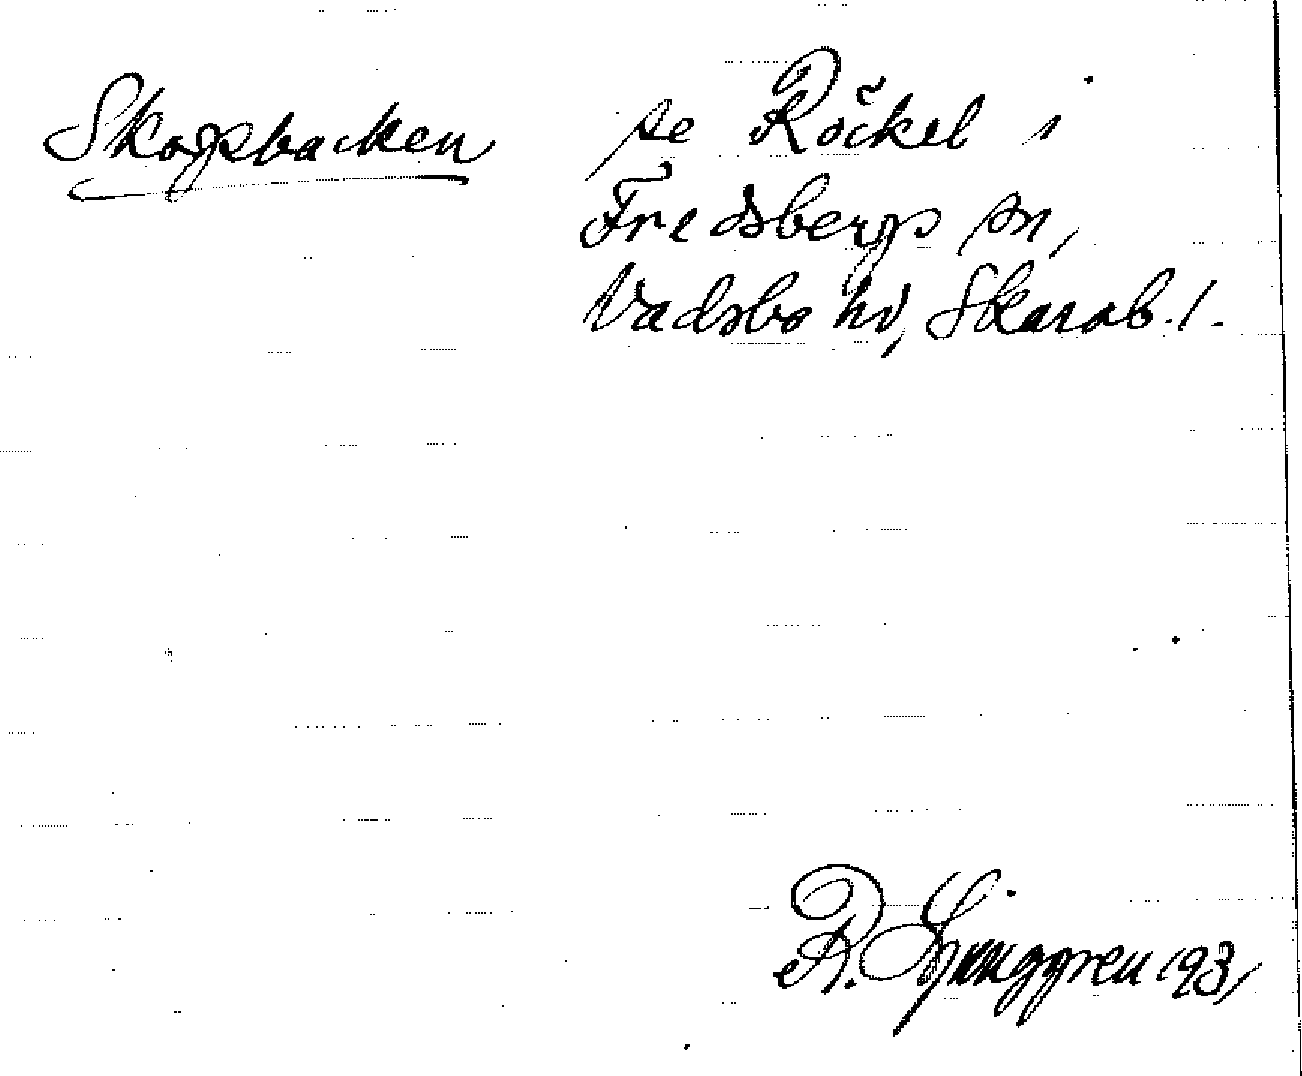 Skogsbacken se Röckel i
Fredsbergs sn,
Vadsbo hd, Skarab. l.
R. Ljunggren 193